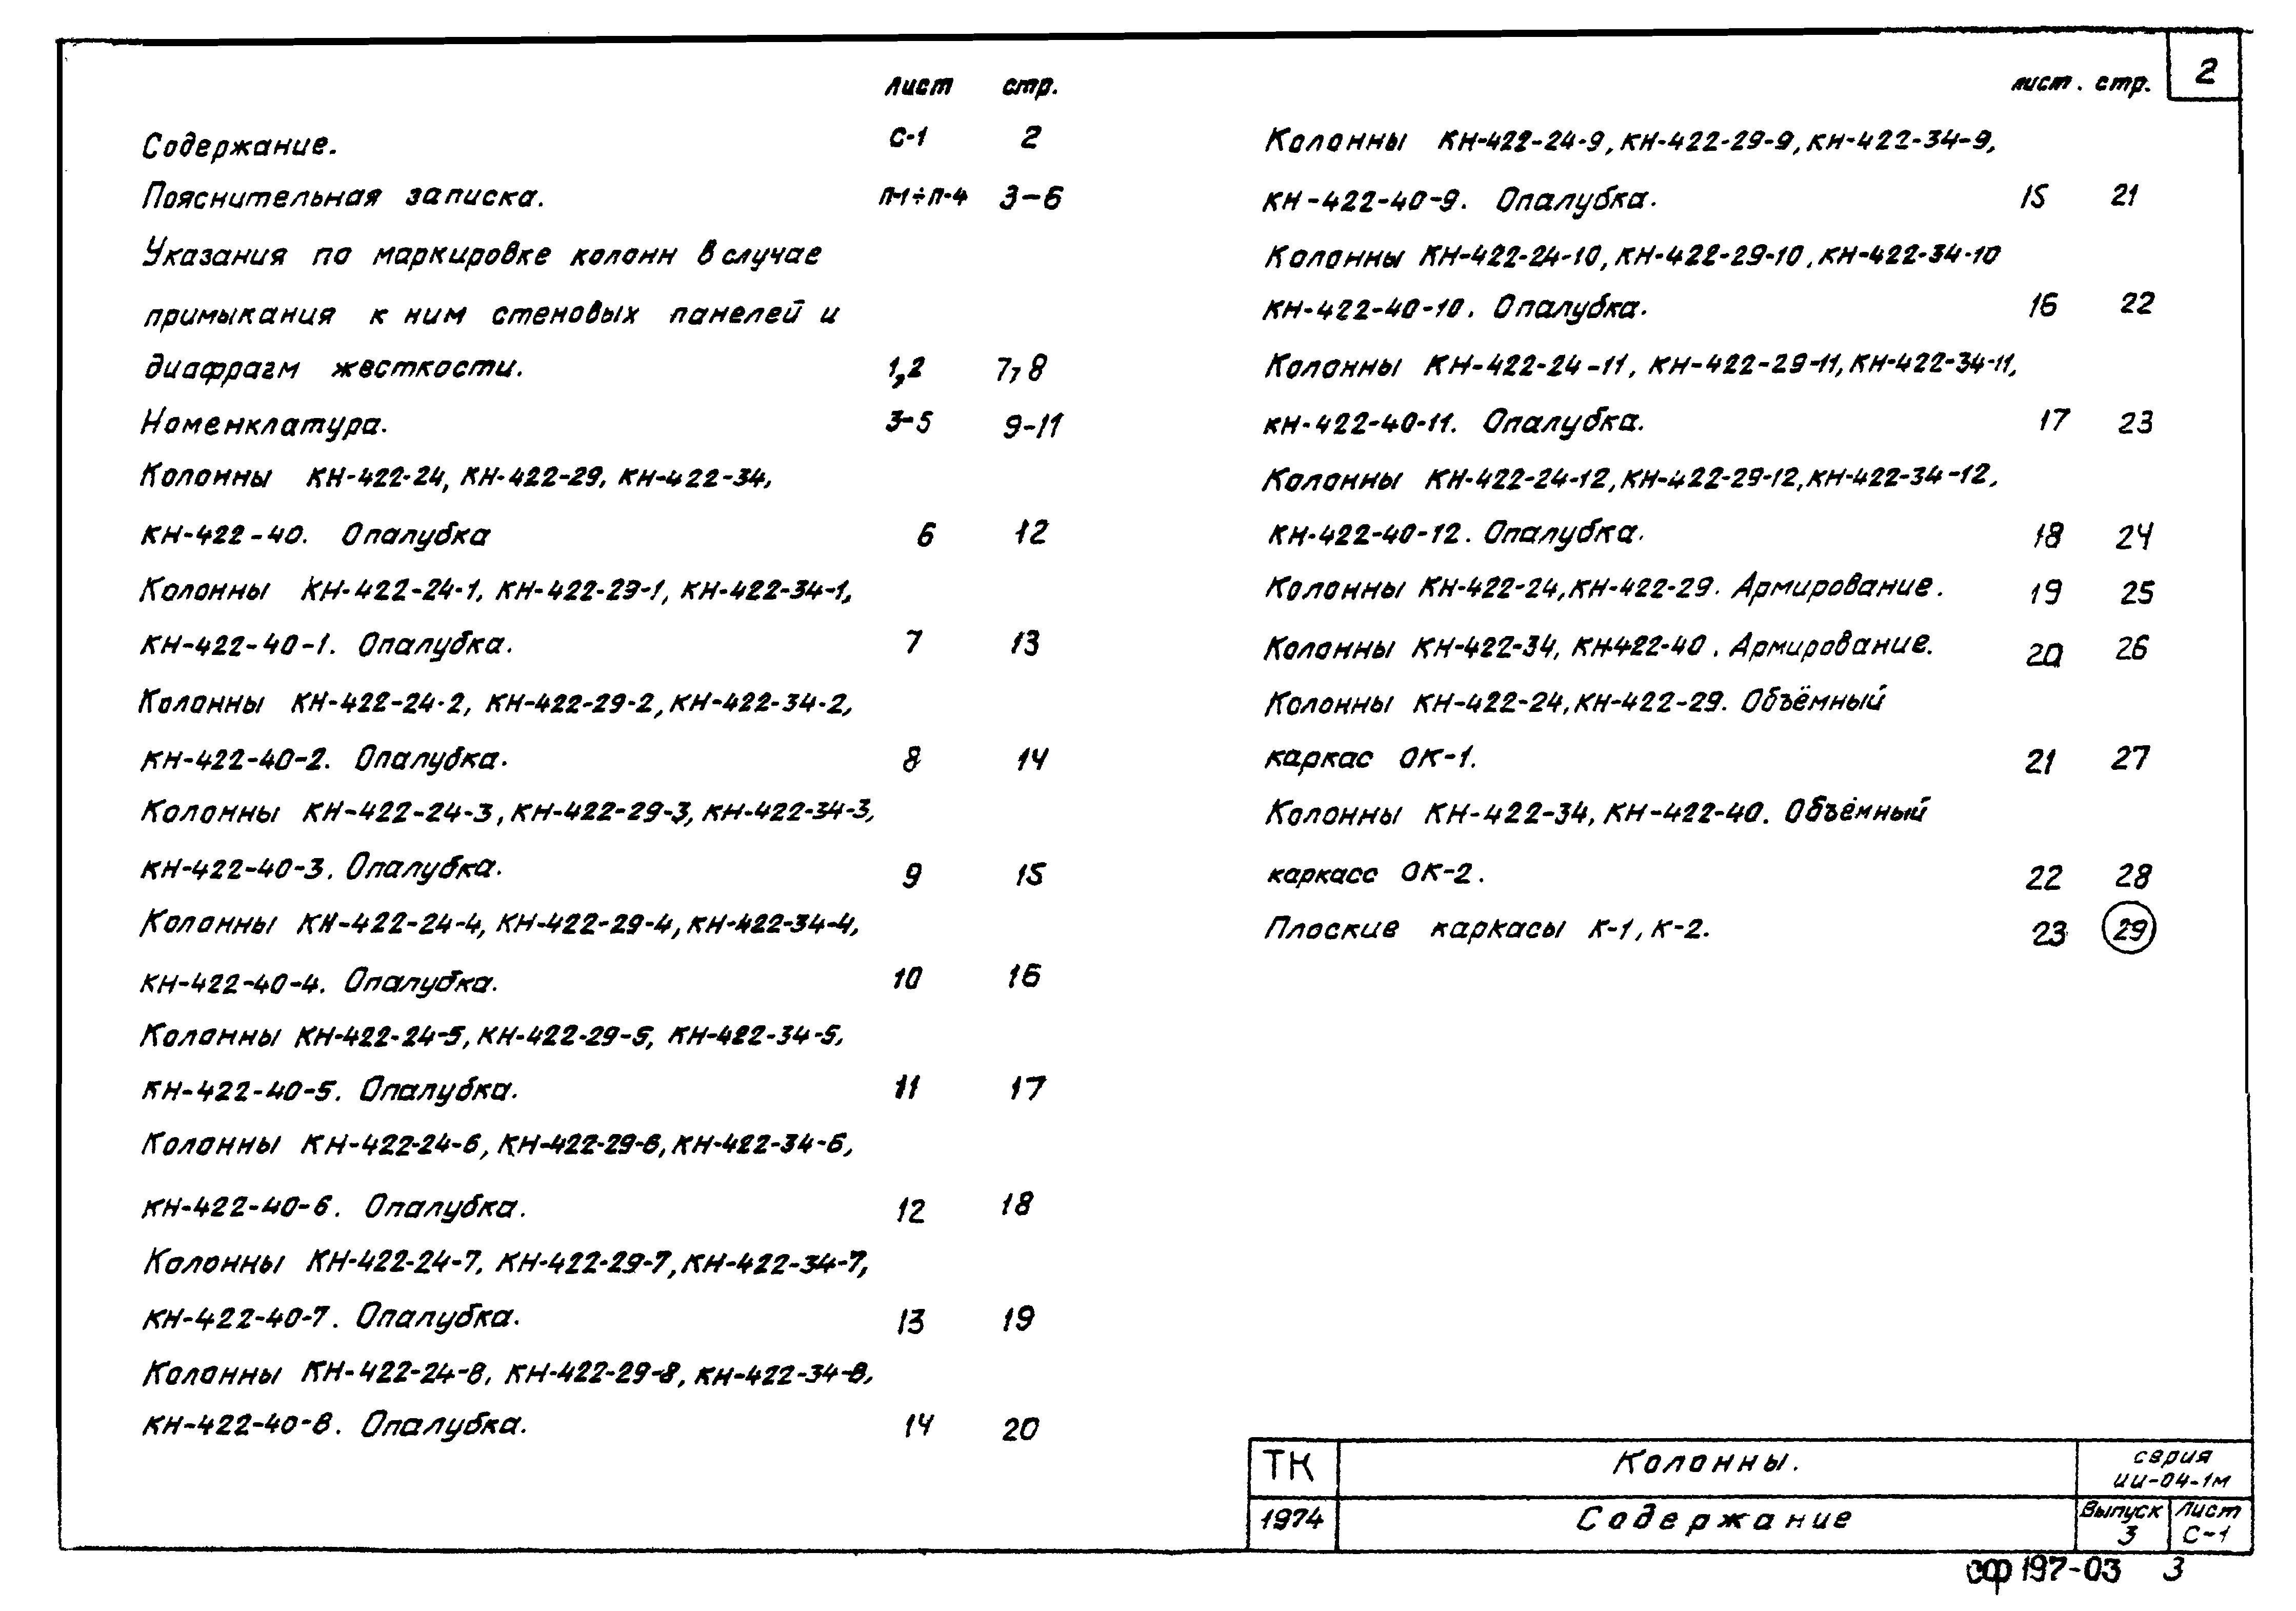 2
лист стр.
Содержание. С-1 2
Пояснительная записка. П-1÷П-4 3-6
Указания по маркировке колонн в случае
примыкания к ним стеновых панелей и
диафрагм жесткости. 1,2 7,8
Номенклатура. 3-5 9-11
Колонны КН-422-24, КН-422-29, КН-422-34,
КН-422-40. Опалубка 6 12
Колонны КН-422-24-1, КН-422-29-1, КН-422-34-1,
КН-422-40-1. Опалубка. 7 13
Колонны КН-422-24-2, КН-422-29-2, КН-422-34-2,
КН-422-40-2. Опалубка. 8 14
Колонны КН-422-24-3, КН-422-29-3, КН-422-34-3,
КН-422-40-3. Опалубка. 9 15
Колонны КН-422-24-4, КН-422-29-4, КН-422-34-4,
КН-422-40-4. Опалубка. 10 16
Колонны КН-422-24-5, КН-422-29-5, КН-422-34-5,
КН-422-40-5. Опалубка. 11 17
Колонны КН-422-24-6, КН-422-29-6, КН-422-34-6,
КН-422-40-6. Опалубка. 12 18
Колонны КН-422-24-7, КН-422-29-7, КН-422-34-7,
КН-422-40-7. Опалубка. 13 19
Колонны КН-422-24-8, КН-422-29-8, КН-422-34-8,
КН-422-40-8. Опалубка. 14 20
лист. стр.
Колонны КН-422-24-9, КН-422-29-9, КН-422-34-9,
КН-422-40-9. Опалубка. 15 21
Колонны КН-422-24-10, КН-422-29-10, КН-422-34-10
КН-422-40-10. Опалубка. 16 22
Колонны КН-422-24-11, КН-422-29-11, КН-422-34-11,
КН-422-40-11. Опалубка. 17 23
Колонны КН-422-24-12, КН-422-29-12, КН-422-34-12,
КН-422-40-12. Опалубка. 18 24
Колонны КН-422-24, КН-422-29. Армирование. 19 25
Колонны КН-422-34, КН-422-40. Армирование. 20 26
Колонны КН-422-24, КН-422-29. Объёмный
каркас ОК-1. 21 27
Колонны КН-422-34, КН-422-40. Объёмный
каркасс ОК-2. 22 28
Плоские каркасы К-1, К-2. 23 29
ТК Колонны. серия
ИИ-04-1м
1974 Содержание Выпуск Лист
3 С-1
сф 197-03 3